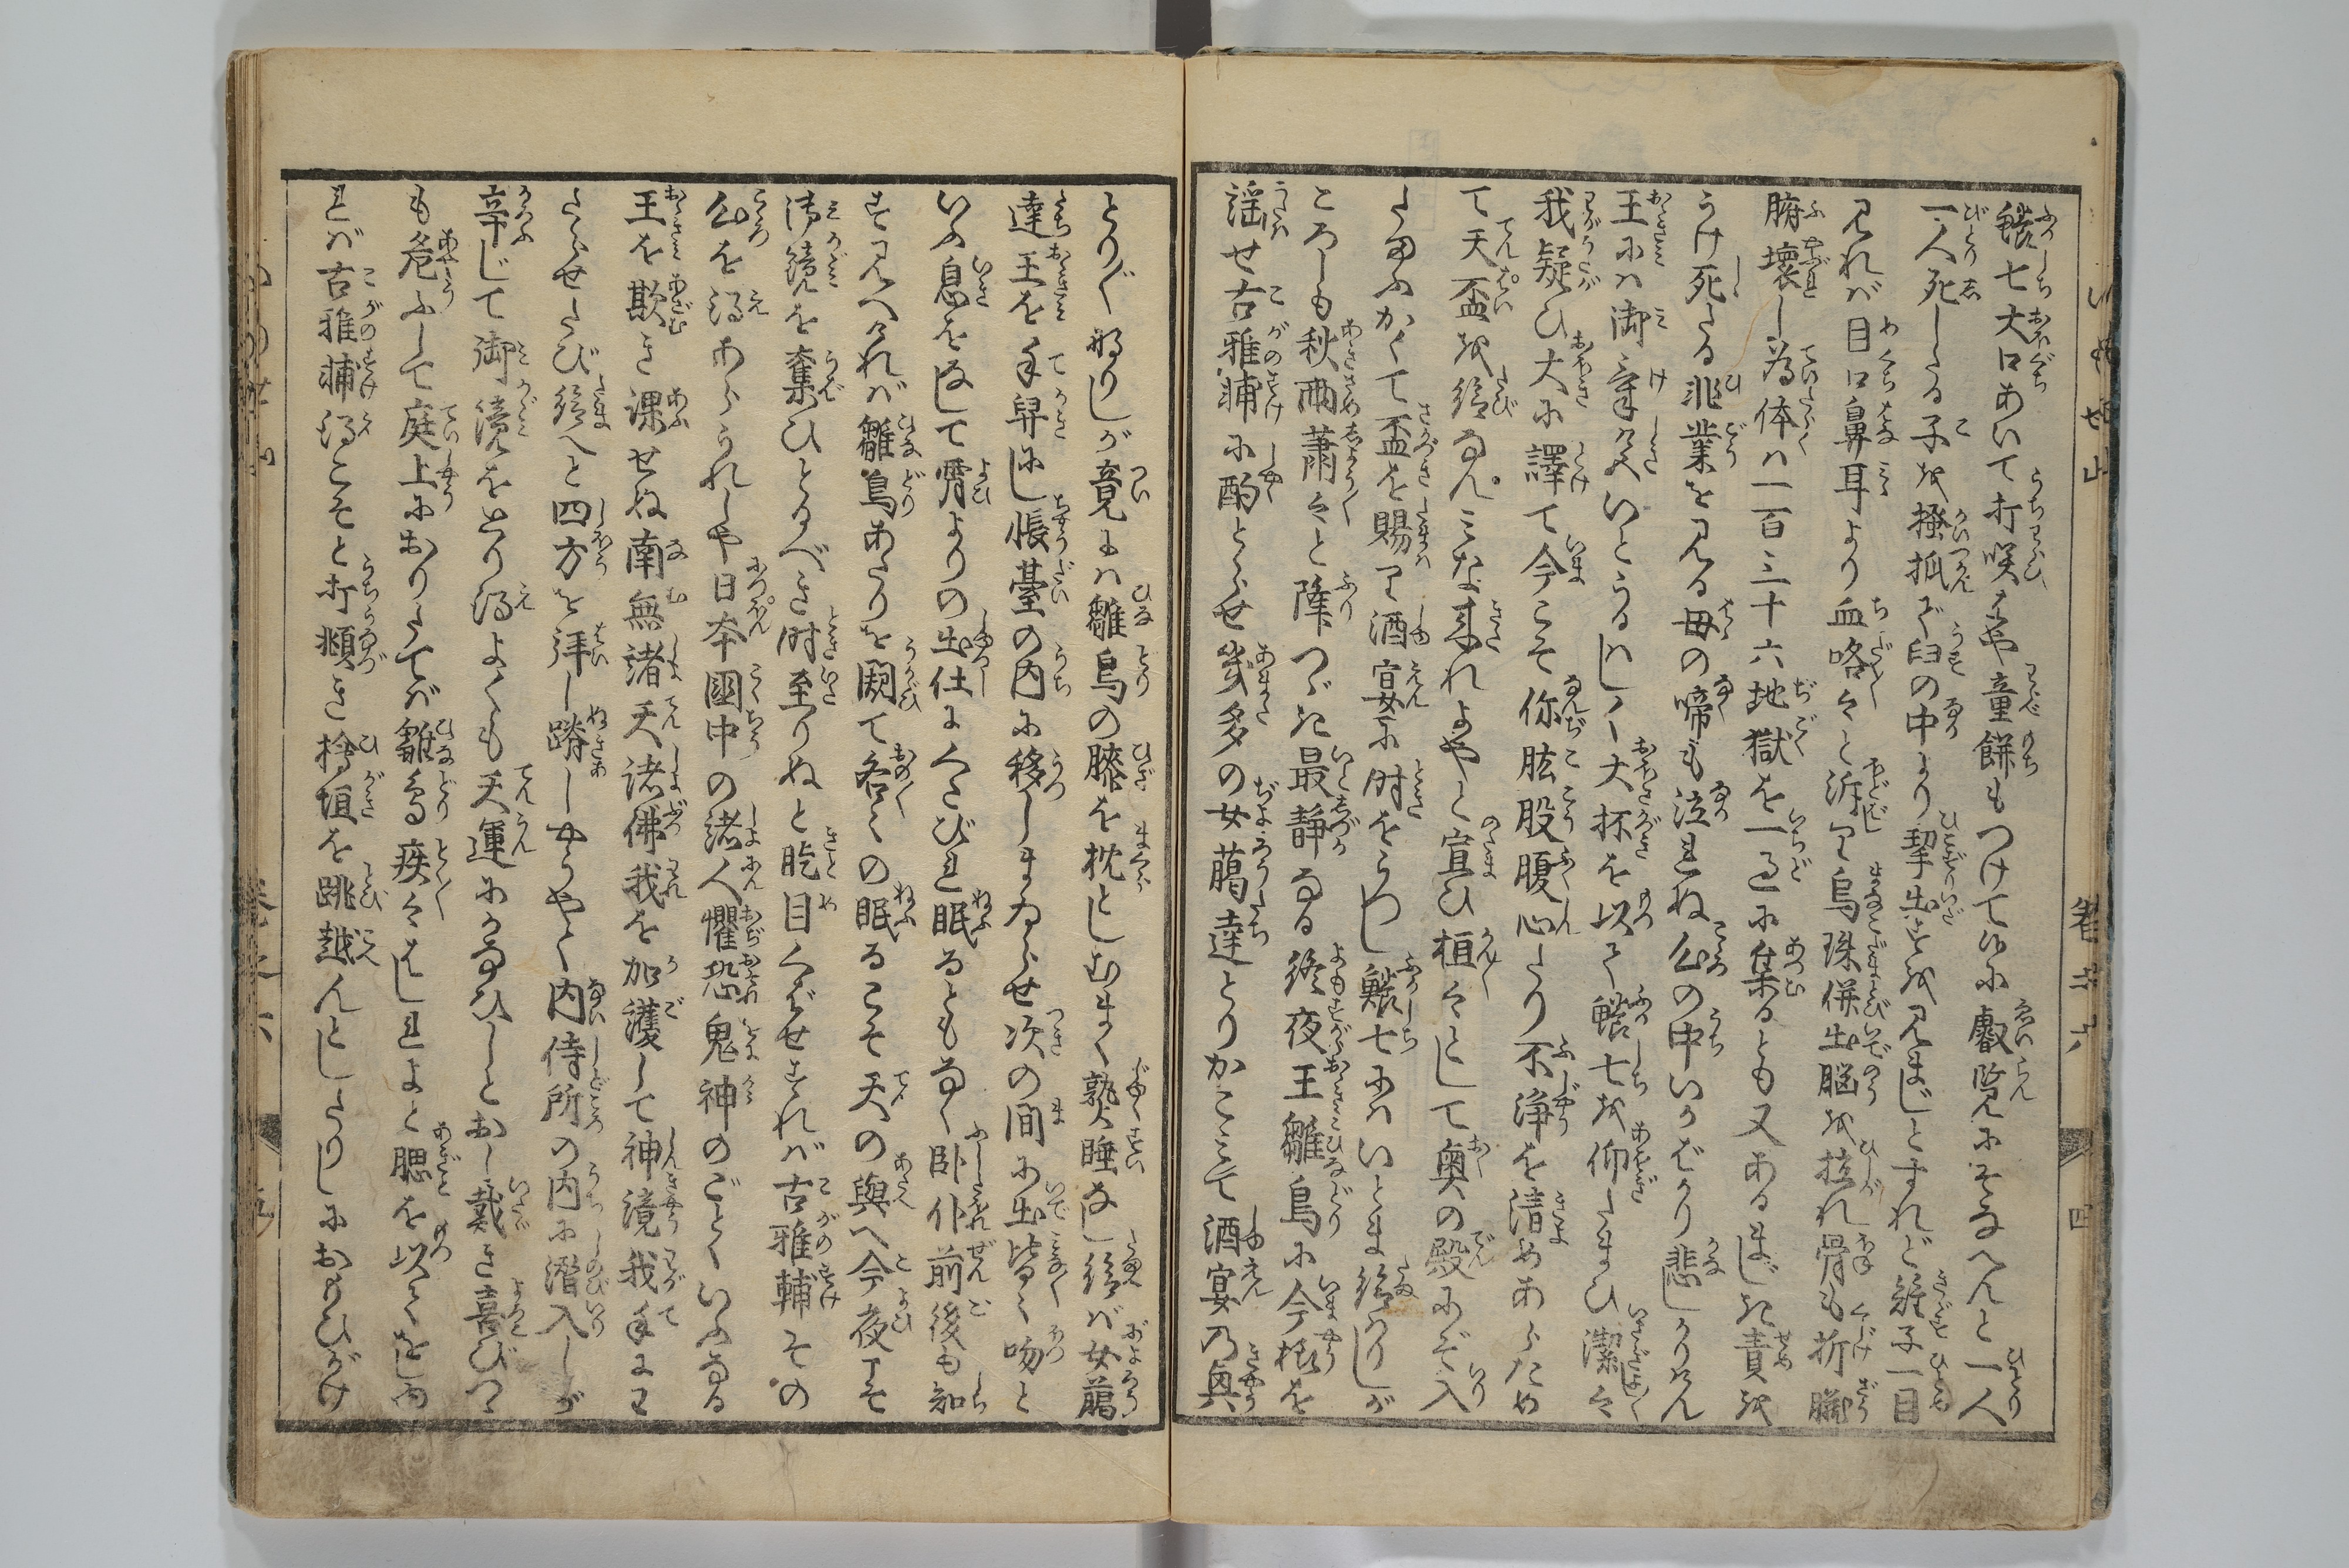 鱶七大口あいて打咲はや童餅もつけて候に叡覧にそなへんと一人
一人死したる子を掻抓で臼の中より挈出を見まじとすれど雉子一目
見れば目口鼻耳より血咯々と泝り烏珠併出脳を拉れ骨も折臓
腑壊し為体は一百三十六地獄を一ニ集るとも又あるまじき責を
うけ死たる非業を見る母の啼も泣れぬ心の中いかばかり悲しかりけん
王には御うるはしく大杯を以て鱶七を仰たまひ潔く
我疑ひ大に譯て今こそ你肱股腹心たり不浄を清めあらため
て天盃を給なんみな来れよやと宣ひ桓々として奥の殿にぞ入
たまふかくて盃を賜り酒宴に時をうつし鱶七にはいとま給はりしが
ころしも秋雨蕭々と降つゞき最静なる終夜王雛鳥に今様を
謡せ古雅輔に酌とらせ幾多の女﨟達とりかこみて酒宴の興
とり〴〵なりしが竟には雛鳥の膝を枕としむまく熟睡なし給ば女﨟
達王を手舁にし帳臺の内に移しまゐらせ次の間に出皆々吻と
いふ息をなして霄よりの出仕にくたびれ眠るともなく臥仆前後も知
ずみへければ雛鳥あたりを闞て各々の眠るこそ天の與へ今夜こそ
御鏡を奪ひとるべき時至りぬと眴目くばせすれば古雅輔その
心を得あらうれしや日本國中の諸人懼恐鬼神のごとくいふなる
王を欺き課せぬ南無諸天諸佛我を加護して神鏡我手に
たらせたび給へと四方を拝し蹐しやうやく内侍所の内に潜入しが
辛じて御鏡をとり得よくも天運にかなひしとおし戴き喜びつ
も危ふして庭上におりたてば雛鳥疾々はしれよと腮を以てをしゆ
れば古雅輔得こそと打頷き桧垣を跳越んとしたりしにおもひがけ
巻之六
四